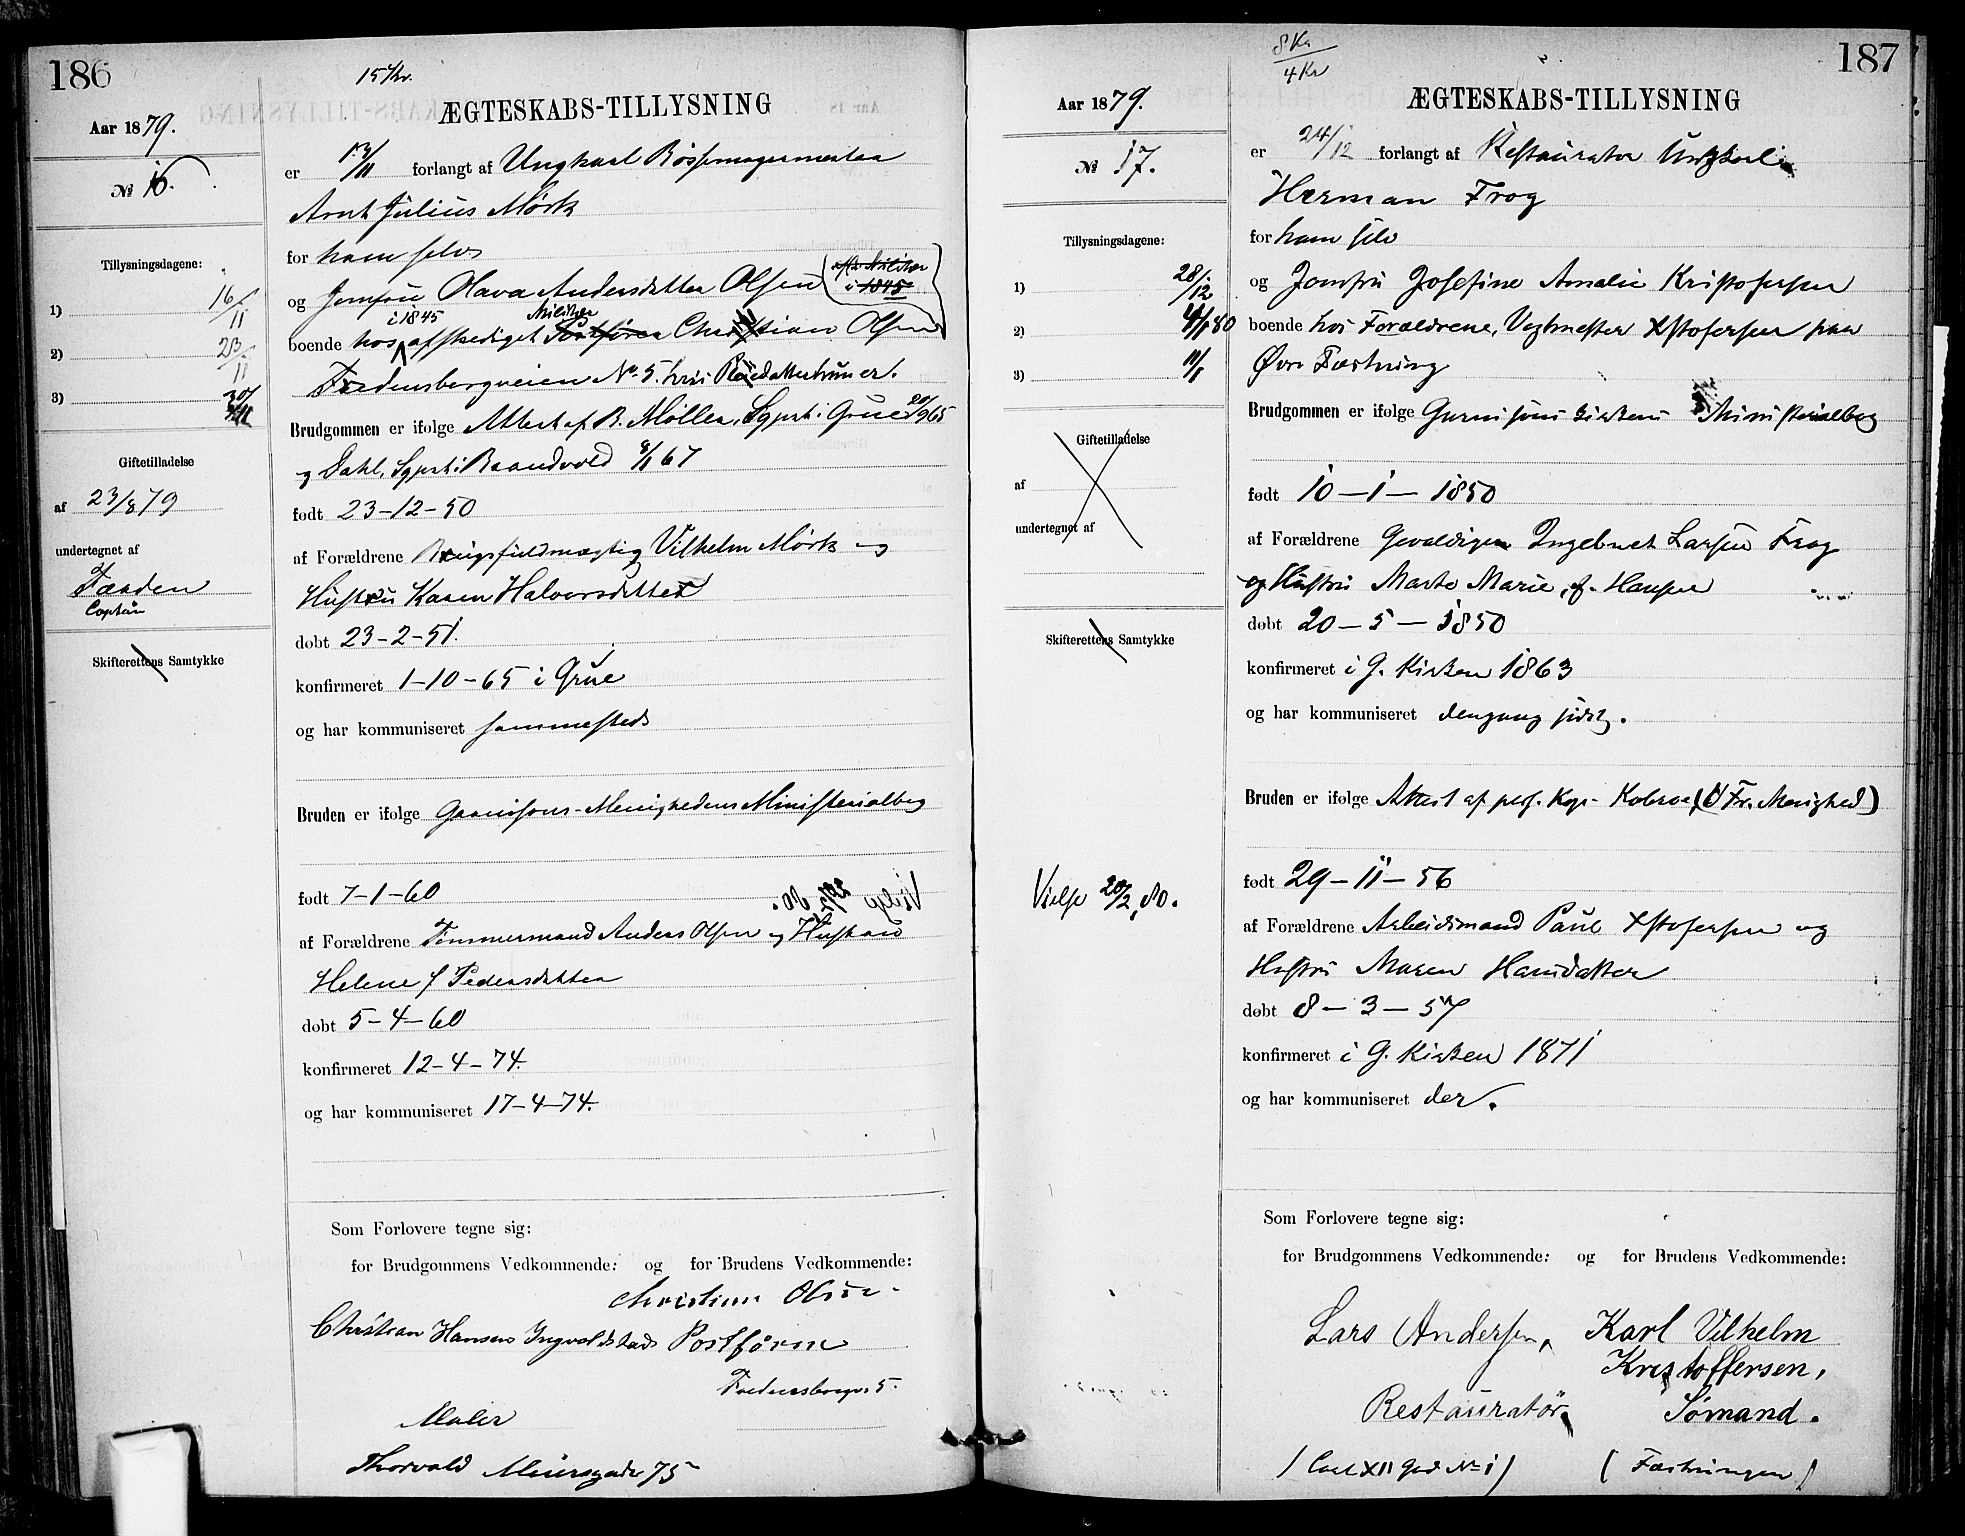 186
15 Kr.
Aar 1879.
№ 16.
Tillysningsdagene:
1) 16/11
2) 23/11
3) 30/11
Giftetilladelse
af 23/8 79
undertegnet af
Færden
Captain
Skifterettens Samtykke
ÆGTESKABS-TILLYSNING
er 13/11 forlangt af Ungkarl Bøssemagermester
Arnt Julius Mørk
for ham selv
og Jomfru Olava Andersdatter Olsen
i 1845 Militær
boende hos afskediget Christian Olsen
Fredensbergveien No 5. hvis er.
Brudgommen er ifølge Attest af B. Møller, Sgprst i Grue 20/9 65
og Dahl, Sgprst i Brandvold 8/1 67
født 23-12-50
af Forældrene Vilhelm Mørk og
Hustru Karen Halvorsdatter
døbt 23-2-51.
konfirmeret 1-10-65 i Grue
og har kommuniseret sammesteds
Bruden er ifølge Garnisons-Menighedens Ministerialbog
født 7-1-60
af Forældrene Tømmermand Anders Olsen og Hustru
Helene f Pedersdatter
døbt 5-4-60
konfirmeret 12-4-74.
og har kommuniseret 17-4-74.
Som Forlovere tegne sig:
for Brudgommens Vedkommende: og for Brudens Vedkommende:
Christian Olsen
Christian Hansen Ingvoldstad Postfører
Fredensborgv. 5.
Maler
Thorvald Meiersgade 75
187
8 Kr
4 Kr
Aar 1879.
№ 17.
Tillysningsdagene:
1) 28/12
2) 4/1 80
3) 11/1
Giftetilladelse
af
undertegnet af
Skifterettens Samtykke
Vielse 20/2, 80.
ÆGTESKABS-TILLYSNING
er 24/12 forlangt af Restauratør Ungkarl
Herman Frog
for ham selv
og Jomfru Josefine Amalie Kristofersen
boende hos Forældrene, Vagtmester Xstofersen paa
Øvre Fæstning
Brudgommen er ifølge Garnisons Kirkens Ministerialbog
født 10-1-1850
af Forældrene Gevaldiger Ingebret Larsen Frog
og Hustru Marte Marie, f. Hansen
døbt 20-5-1850
konfirmeret i G. Kirken 1863
og har kommuniseret dengang sidst.
Bruden er ifølge Attest af pers. Kap. Kobroe, (V Fr. Menighed)
født 29-11-56
af Forældrene Arbeidsmand Paul Xstofersen og
Hustru Maren Hansdatter
døbt 8-3-57
konfirmeret i G. Kirken 1871
og har kommuniseret der.
Som Forlovere tegne sig:
for Brudgommens Vedkommende: og for Brudens Vedkommende:
Lars Andersen, Karl Vilhelm
Kristoffersen,
Restauratør, Sømand.
(Carl XII Gad No 1) (Fæstningen)